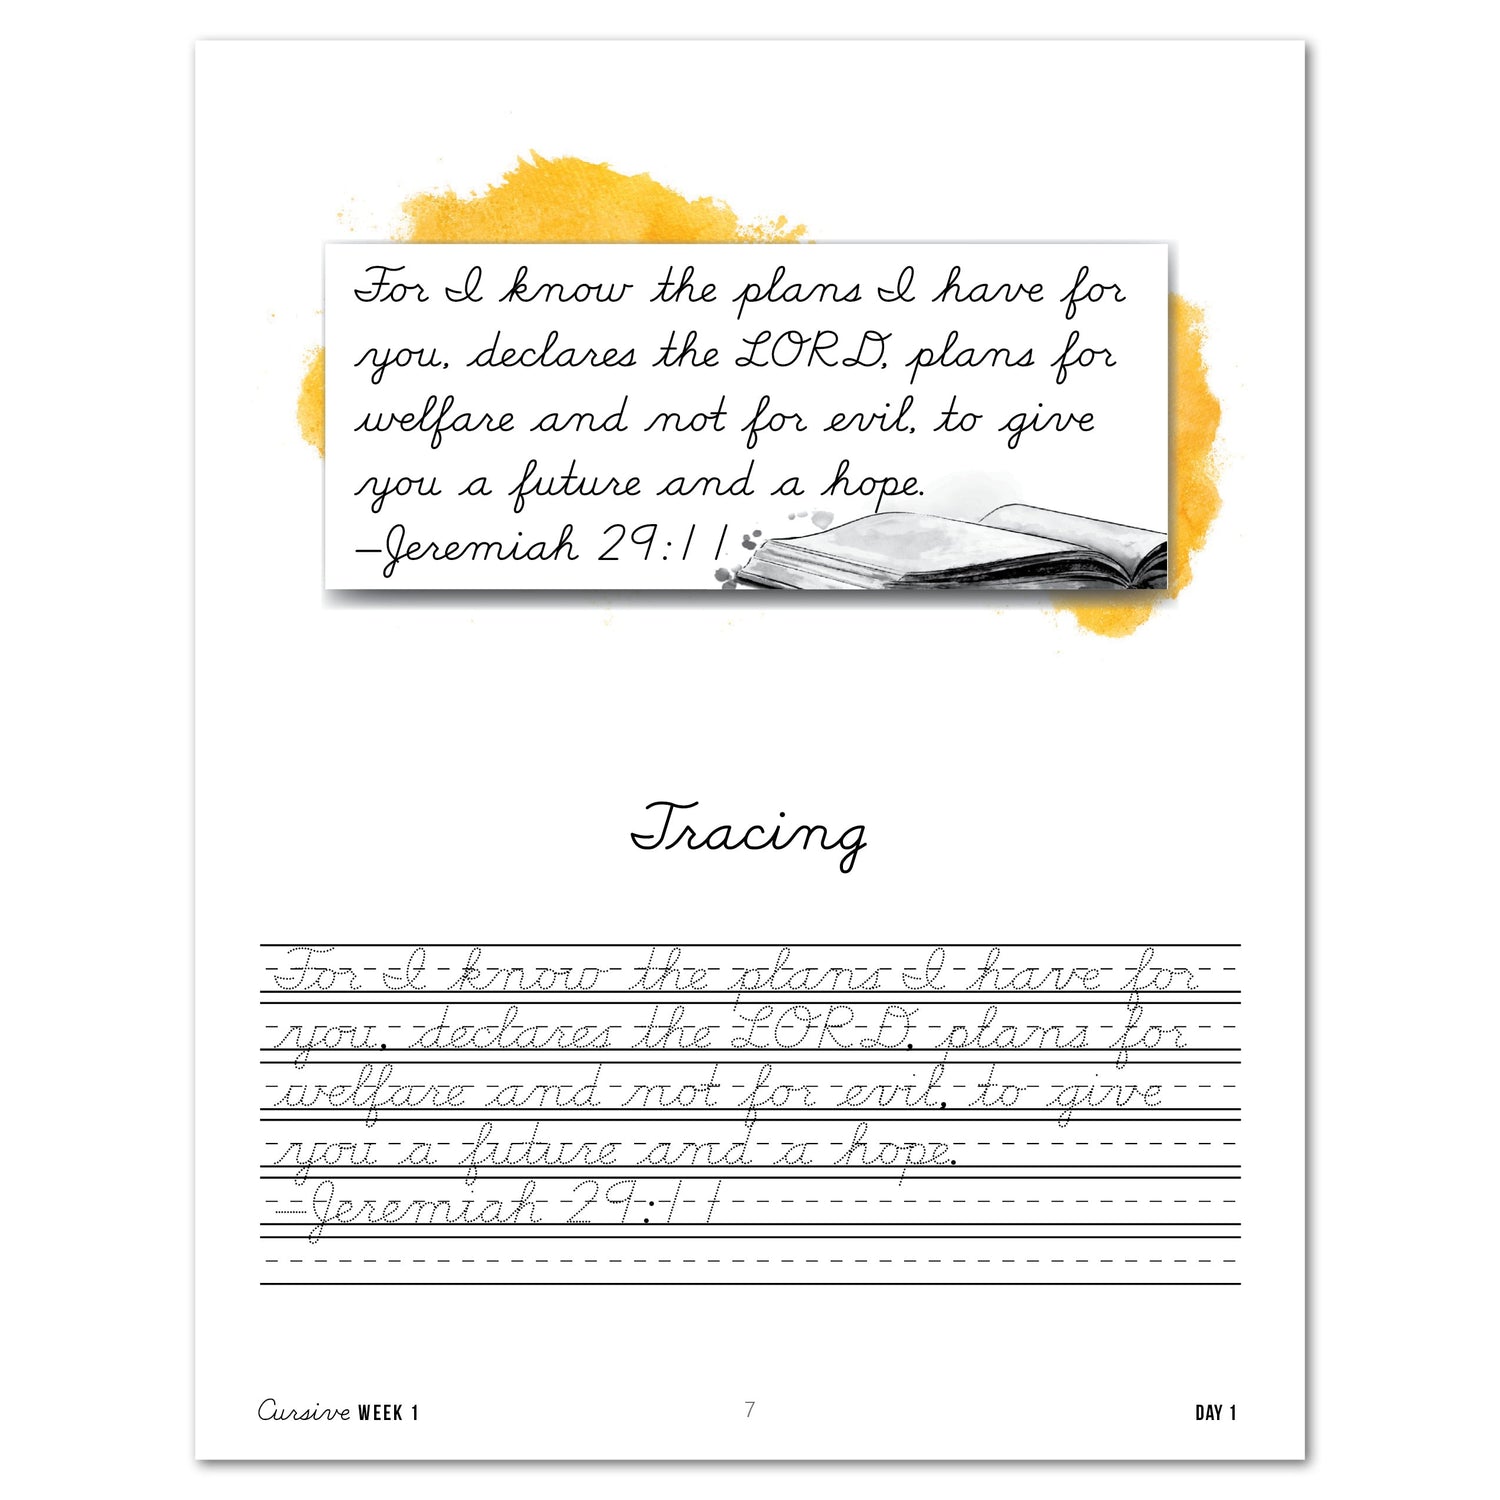 For I know the plans I have for
you, declares the LORD, plans for
welfare and not for evil, to give
you a future and a hope.
–Jeremiah 29:11
Tracing
For I know the plans I have for
you, declares the LORD, plans for
welfare and not for evil, to give
you a future and a hope.
–Jeremiah 29:11
Cursive WEEK 1
7
DAY 1